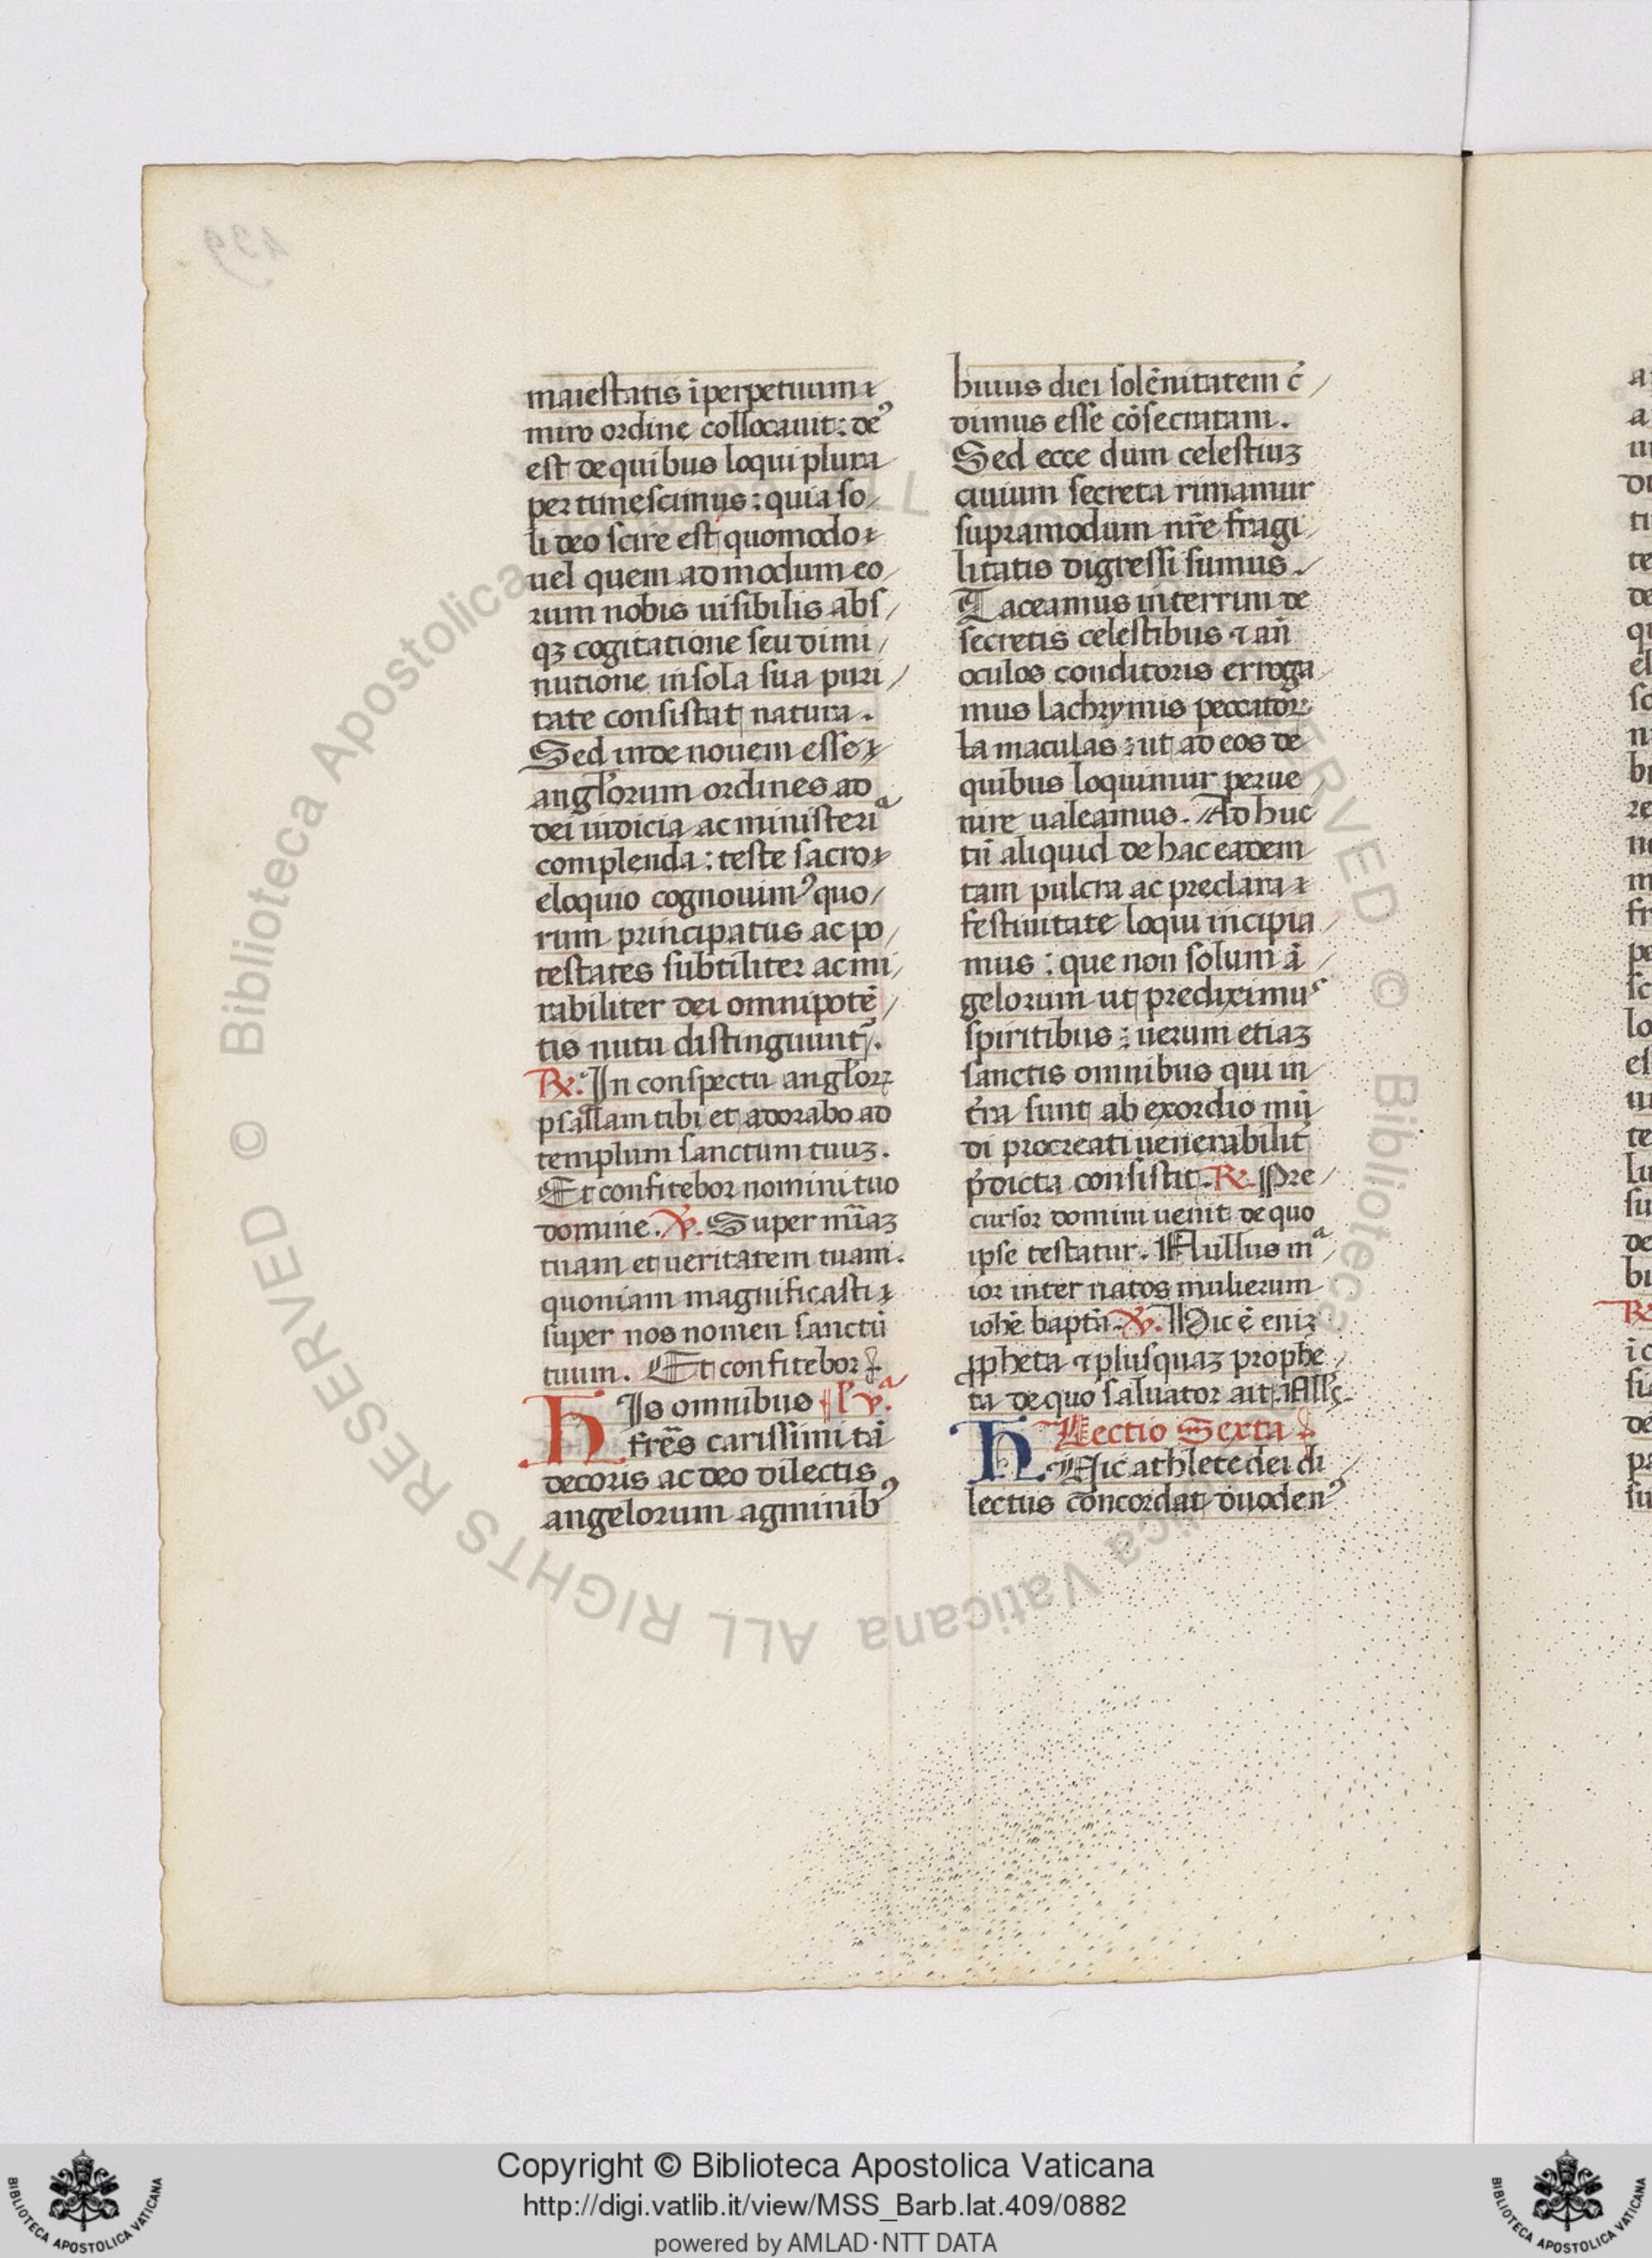 maiestatis ī perpetuum
miro ordine collocauit: deꝰ
est de quibus loqui plura
pertimescimus: quia so
li deo scire est quomodo
uel quem admodum eo
rum nobis uisibilis abs
qꝫ cogitatione seu dimi
nutione in sola sua puri
tate consistat natura.
Sed inde nouem esse
angl̓orum ordines ad
dei iudicia ac ministeria
complenda: teste sacro
eloquio cognouimꝰ quo
rum principatus ac po
testates subtiliter ac mi
rabiliter dei omnipotē
tis nutu distinguunt᷑.
℟. In conspectu angl̓oꝝ
psallam tibi et adorabo ad
templum sanctum tuuꝫ.
Et confitebor nomini tuo
domine. ℣. Super mīaꝫ
tuam et ueritatem tuam.
quoniam magnificasti
super nos nomen sanctū
tuum. Et confitebor
His omnibus l̓ vᵃ.
fr̄es carissimi tā
decoris ac deo dilectis
angelorum agminibꝰ
huius diei solēnitatem c̄
dimus esse cōsecratam.
Sed ecce dum celestiuꝫ
ciuium secreta rimamur
supramodum nr̄e fragi
litatis digressi sumus.
Taceamus interim de
secretis celestibus ⁊ an̄
oculos conditoris erroga
mus lachrymis peccator
la maculas: ut ad eos de
quibus loquimur perue
nire ualeamus. Ad huc
tn̄ aliquid de hac eadem
tam pulcra ac preclara
festiuitate loqui incipia
mus: que non solum ā
gelorum ut prediximus
spiritibus: uerum etiaꝫ
sanctis omnibus qui in
t̄ra sunt ab exordio mū
di procreati uenerabilit̄
p̄dicta consistit. ℟. Pre
cursor domini uenit de quo
ipse testatur. Nullus mᵃ
ior inter natos mulierum
iohē baptā. ℣. Hic ē eniꝫ
ꝓpheta ⁊ plusquaꝫ prophe
ta de quo saluator ait. Null̓ꝰ
Lectio Sexta
Hic athlete dei di
lectus concordat duodenꝰ
139
© Biblioteca Apostolica Vaticana ALL RIGHTS RESERVED © Biblioteca Apostolica Vaticana ALL RIGHTS RESERVED
Copyright © Biblioteca Apostolica Vaticana
http://digi.vatlib.it/view/MSS_Barb.lat.409/0882
powered by AMLAD·NTT DATA
BIBLIOTECA APOSTOLICA VATICANA
BIBLIOTECA APOSTOLICA VATICANA